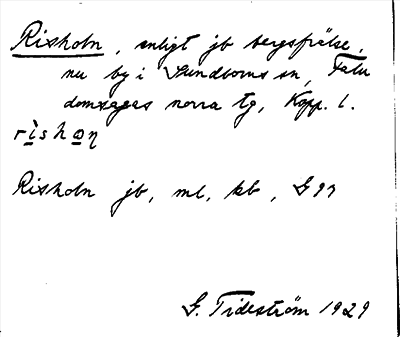 Risholn, enligt jb bergsfrälse,
nu by i Sundborns sn, Falu
domsagas norra tg, Kopp. l.
rishon
Risholn jb, ml, kb, G
G. Tideström 1929